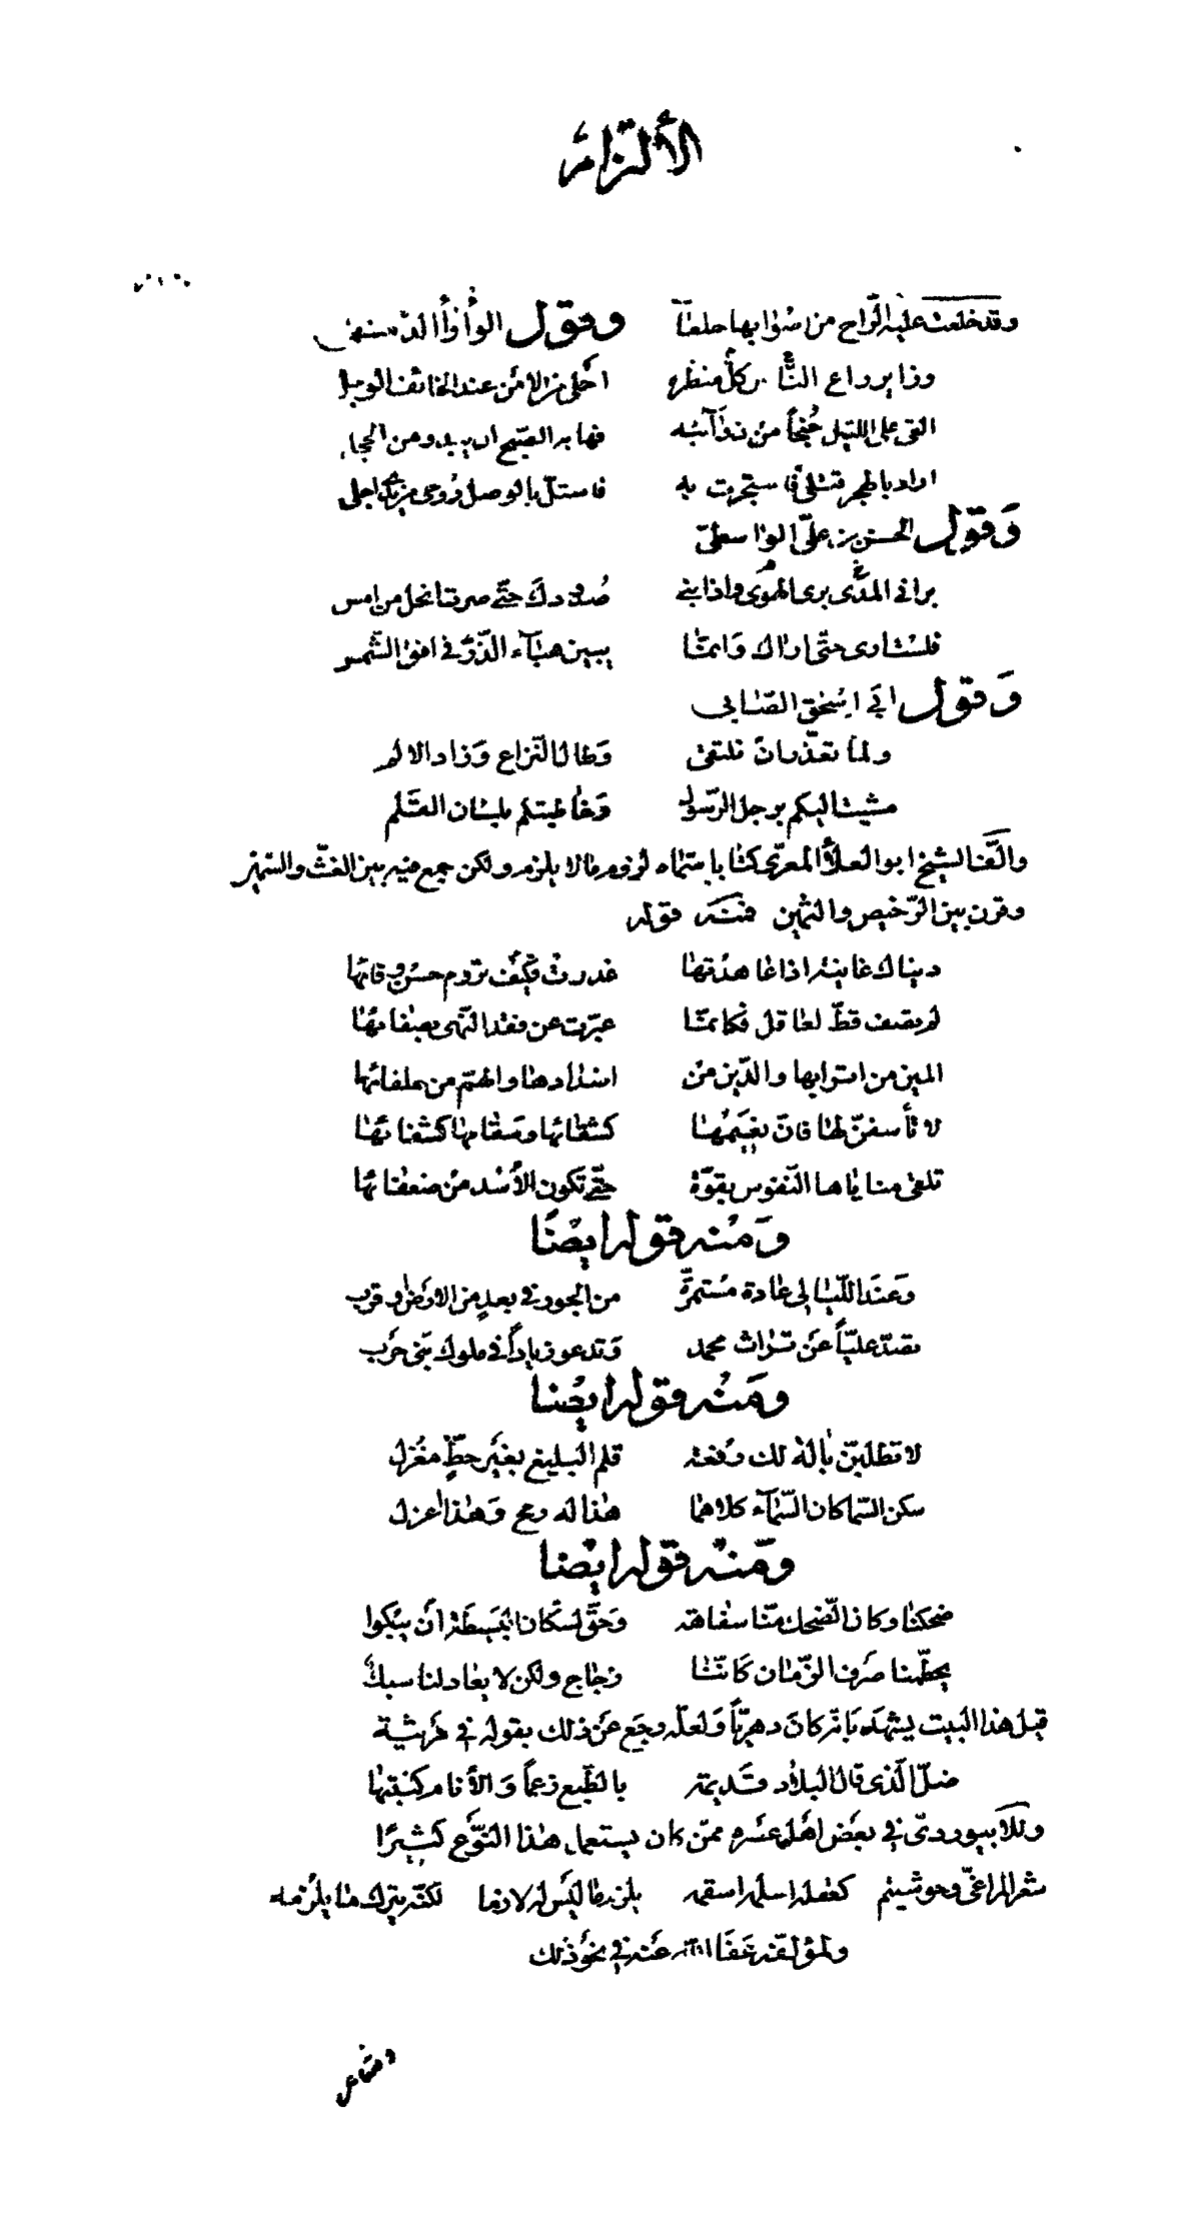 الألتزام
وقد خلعت عليه الراح من أثوابها خلعا وقول الوأواء الدمشقي
وزاير راع كل منظره احلى من الامن عند الخائف الوجل
القى على الليل جنحاً من ذوآئبه فهابه الصبح ان يبدو من الخجل
اراد بالهجر قتلي فاستجرت به فاستلّ بالوصل روحي من يدي اجلي
وَقول الحسن بن علىّ الواسطىّ
براني الهوى برى المدى واذابنى صدودك حتّى صرت انحل من امس
فلست ارى حتّى اراك وَانمّا يبين هبآء الذّرّ في افق الشّمس
وَقول ابي اسحٰق الصّابي
ولما تعذّر ان نلتقى وَطال النّزاع وَزاد الالم
مشيت اليكم برجل الرّسول وَخاطبتكم بلسان القلم
والّف الشيخ ابو العلاء المعرّى كتابا سمّاه لزوم ما لا يلزم ولكن جمع فيه بين الغثّ والسّمين
وقرن بين الرّخيص والثّمين فمنه قوله
دنياك غانية اذا عاهدتها غدرت فكيف تروم حسن وفائها
لم يصف قطّ لعاقل فكانمّا عبّرت عن فقد النّهى بصفائها
المين من اترابها والدّين من اندادها والهتم من حلفائها
لا تأسفنّ لها فانّ نعيمها كشقائها وسقامها كشفائها
تلقى مناياها النّفوس بقوّة حتّى تكون الأسد من ضعفائها
وَمنه قوله ايضًا
وَعند اللّيالي عادة مستمرّة من الجور في بعد من الارض او قرب
تصدّ عليّاً عن تراث محمد وَتدعو زياداً في ملوك بنى حرب
ومنه قوله ايضا
لا تطلبنّ بآلة لك رفعة قلم البليغ بغير حظّ مغزل
سكن السّماكان السّمآء كلاهما هٰذا له رمح وَهٰذا اعزل
ومنه قوله ايضا
ضحكنا وكان الضّحك منّا سفاهة وَحقّ لسكّان البسيطة ان يبكوا
يحطّمنا صرف الزّمان كانّنا زجاج ولكن لا يعاد لنا سبك
قيل هذا البيت يشهد بانّه كان دهريّاً وَلعلّه رجع عن ذلك بقوله في مرثية
ضلّ الّذي قال البلاد قديمة بالطّبع زعماً وَالأنام كنبتها
وللآبيوردىّ في بعض اهل عصره ممّن كان يستعمل هٰذا النّوع كثيرًا
شعر المراغىّ وحوشيتم كعقله اسلمه اسقمه يلزم ما ليس له لازما لكنّه يترك ما يلزمه
ولمؤلفه عفا الله عنه في نحو ذلك